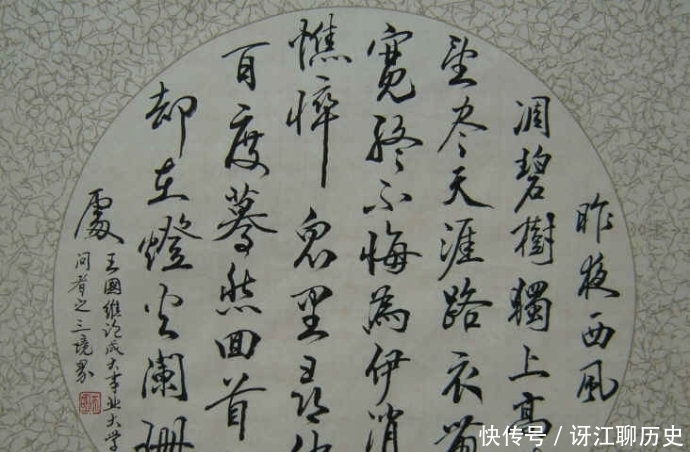 昨夜西风
凋碧樹獨上高
望尽天涯路衣带
寬终不悔為伊消
憔悴众里尋他
百度驀然回首
却在燈火阑珊
處
王國維论成大事业大学
问者之三境界
快传号 / 讶江聊历史